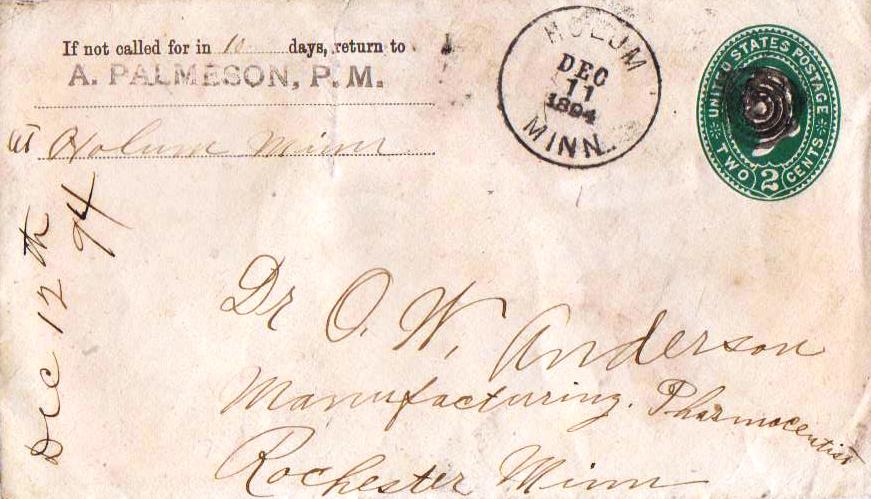 If not called for in 10 days, return to
A. PALMESON, P. M.
at Holum Minn
HOLUM
DEC
11
1894
MINN.
UNITED STATES POSTAGE
TWO 2 CENTS
Dec 12th
94
Dr O. W. Anderson
Manufacturing. Pharmoceutist
Rochester Minn